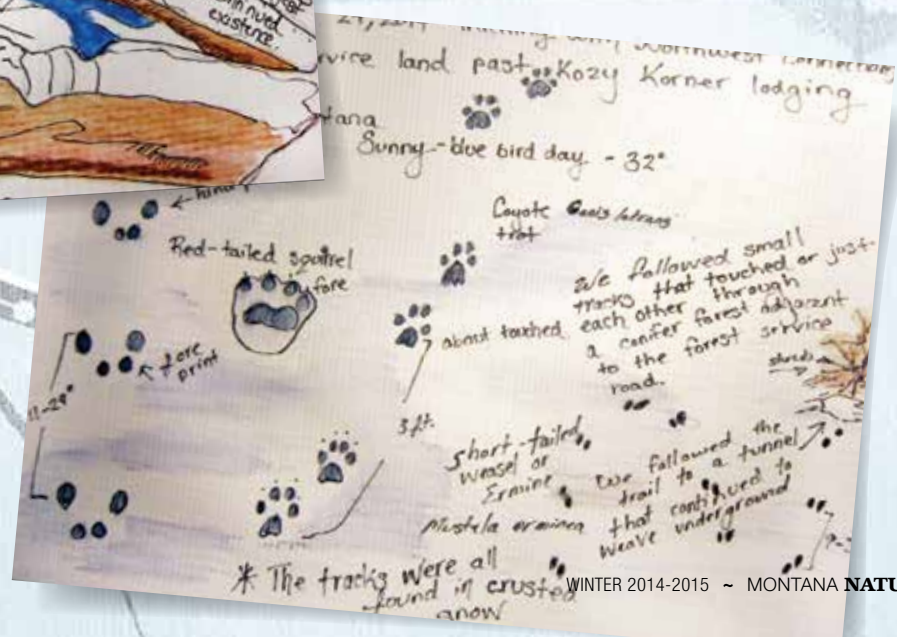 continued
existence.
Northwest Connections
land past Kozy Korner lodging
Sunny - blue bird day - 32°
Coyote
trot
Red-tailed squirrel
fore
We followed small
tracks that touched or just-
about touched each other through
a conifer forest adjacent
to the forest service
road.
shreds
fore
print
3 ft.
short-tailed
weasel or
Ermine
Mustela erminea
We followed the
trail to a tunnel
that continued to
weave underground
* The tracks were all
found in crusted
snow
WINTER 2014-2015 ~ MONTANA NATU